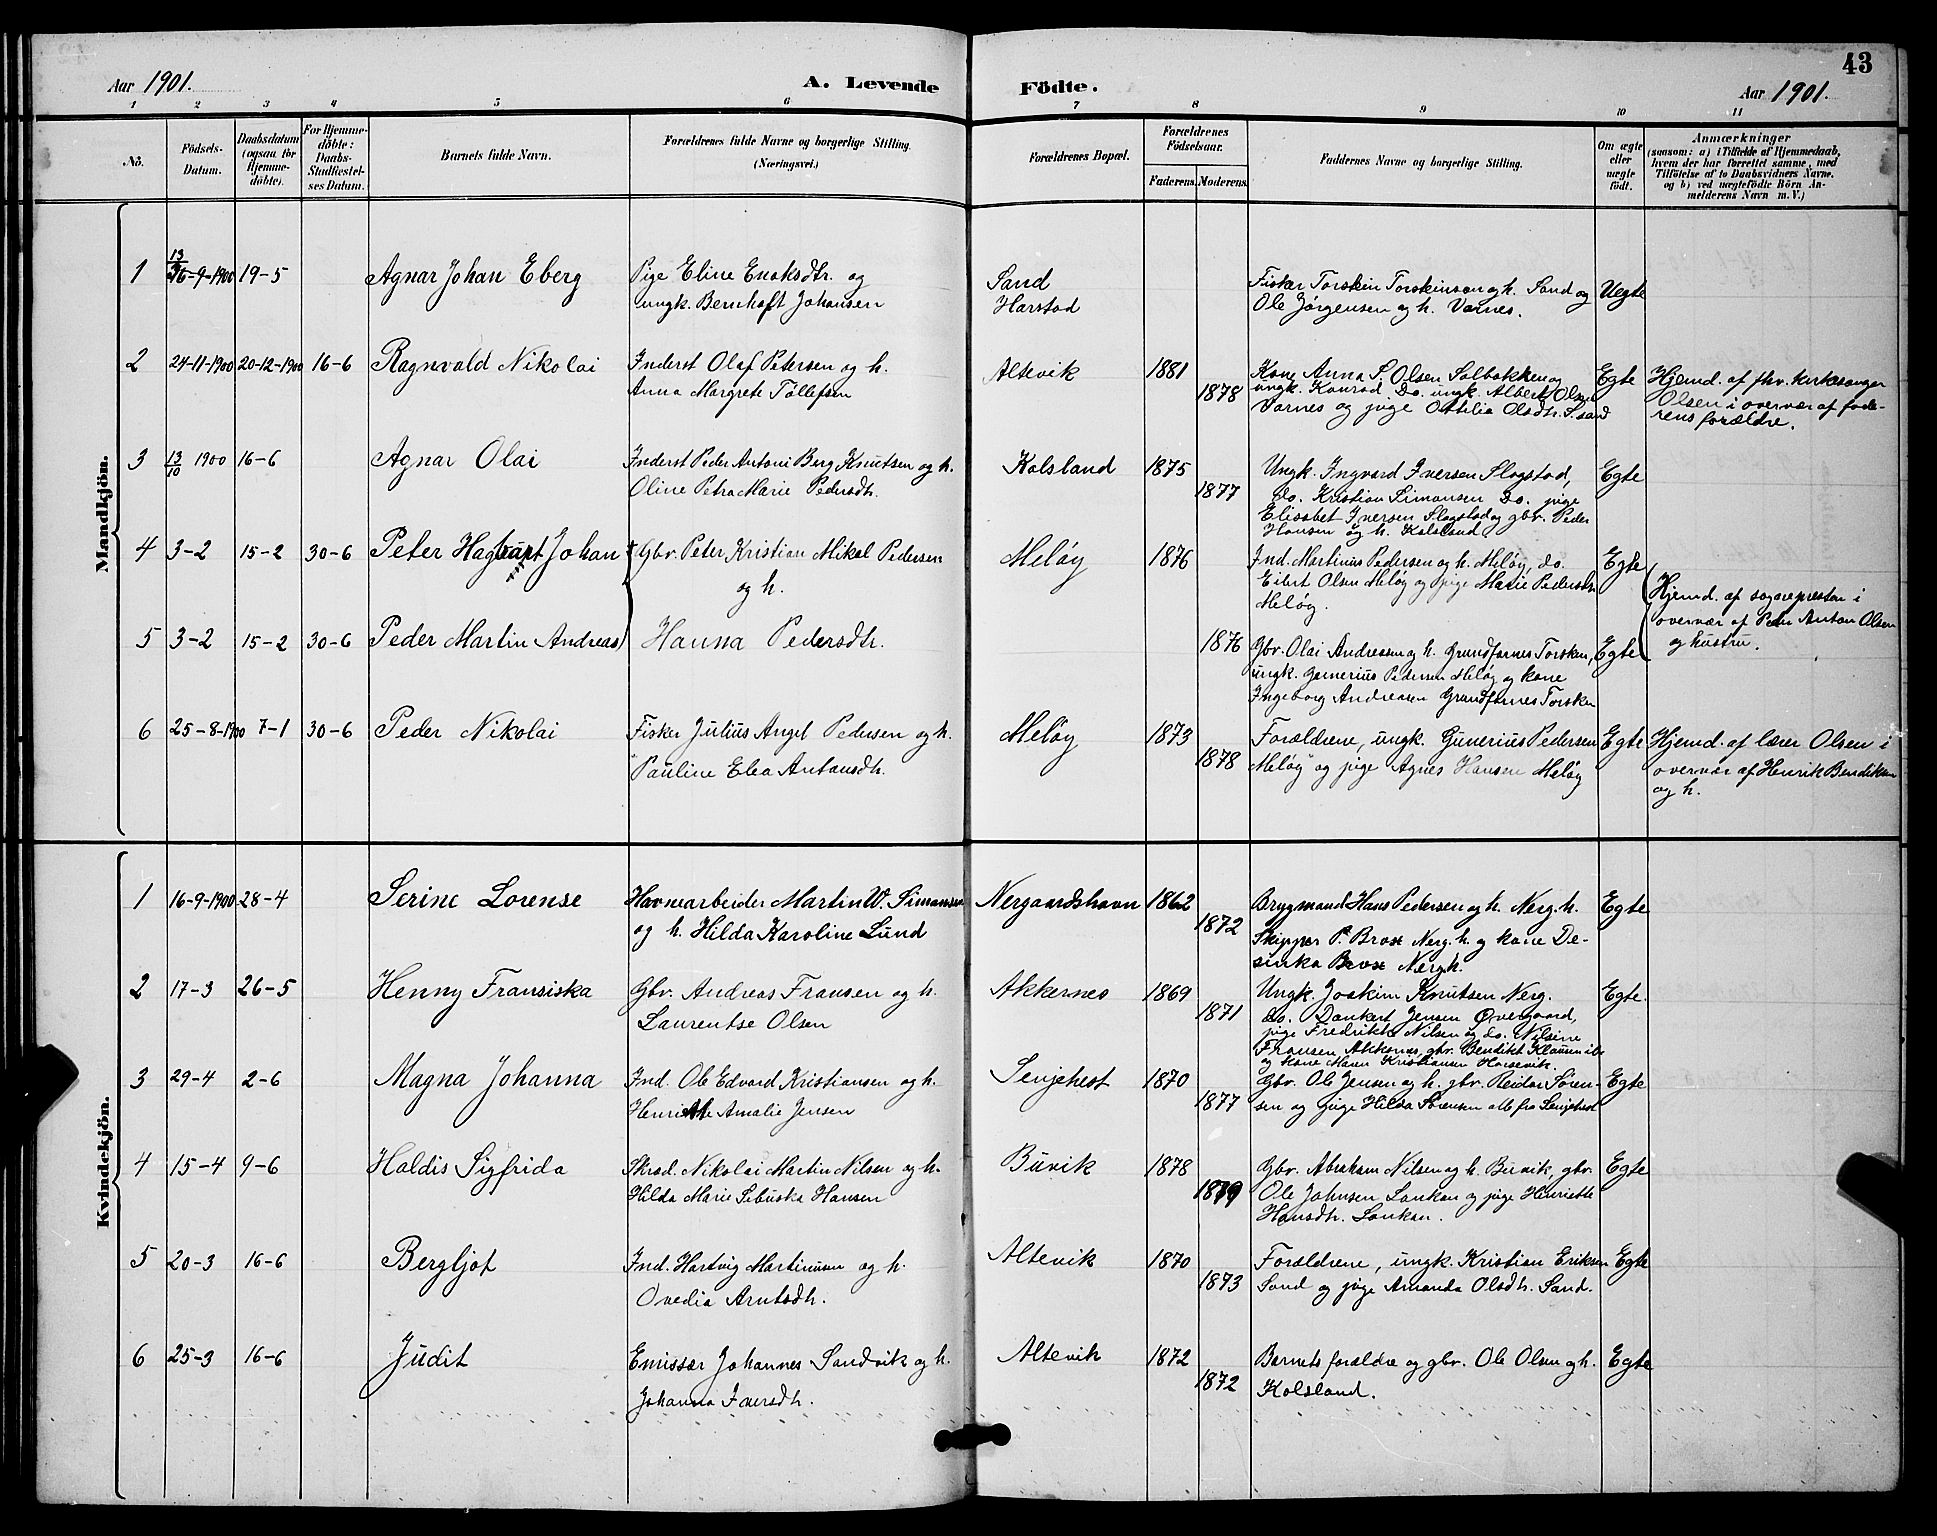 43
Aar 1901. A. Levende Födte. Aar 1901.
1 2 3 4 5 6 7 8 9 10 11
No. Födsels-Datum. Daabsdatum (ogsaa for Hjemmedöbte). For Hjemmedöbte: Daabs-Stadfæstelses Datum. Barnets fulde Navn. Forældrenes fulde Navne og borgerlige Stilling. (Næringsvei.) Forældrenes Bopæl. Forældrenes Födselsaar. Faderens. Moderens. Faddernes Navne og borgerlige Stilling. Om ægte eller uægte födt. Anmærkninger (saasom: a) i Tilfælde af Hjemmedaab, hvem der har forrettet samme, med Tilföielse af to Daabsvidners Navne, og b) ved uægtefödte Börn Anmelderens Navn m. V.)
Mandkjön.
1 13 -9-1900 19-5 Agnar Johan Eberg Pige Eline Enoksdtr. og Sand Fisker Torstein Torsteinsen og h. Sand og Uegte
ungk. Bernhoft Johansen Harstad Ole Jørgensen og h. Varnes.
2 24-11-1900 20-12-1900 16-6 Ragnvald Nikolai Inderst Olaf Petersen og h. Altevik 1881 Kone Anna S. Olsen Solbakken og Egte Hjemd. af fhv. kirkesanger
Anna Margrete Tollefsen 1878 ungk. Konrad Do. ungk. Albert Olsen Olsen i overvær af fade-
Varnes og pige Ottilia Olsdtr. Sand rens forældre.
3 13/10 1900 16-6 Agnar Olai Inderst Peder Antoni Berg Knutsen og h. Kolsland 1875 Ungk. Ingvard Iversen Slagstad, Egte
Oline Petra Marie Pedersdtr. 1877 do. Kristian Simonsen Do. pige
Elisabet Iversen Slagstad og gbr. Peder
Hansen og h. Kolsland
4 3-2 15-2 30-6 Peter Hagbart Johan Gbr. Peter Kristian Mikal Pedersen Meløy 1876 Ind. Martinus Pedersen og h. Meløy, do. Egte
og h. Eilert Olsen Meløy og pige Marie Pedersdtr. Hjemd. af sognepresten i
Meløy. overvær af Peder Anton Olsen
5 3-2 15-2 30-6 Peder Martin Andreas Hanna Pedersdtr. 1876 Gbr. Olai Andreasen og h. Grundfarnes Torsken, Egte og hustru.
ungk. Gunerius Pedersen Meløy og kone
Ingeborg Andreasen Grundfarnes Torsken
6 25-8-1900 7-1 30-6 Peder Nikolai Fisker Julius Angel Pedersen og h. Meløy 1873 Forældrene, ungk. Gunerius Pedersen Egte Hjemd. af lærer Olsen i
Pauline Elea Antonsdtr. 1878 Meløy og pige Agnes Hansen Meløy overvær af Henrik Bendiksen
og h.
Kvindekjön.
1 16-9-1900 28-4 Serine Lorense Havnearbeider Martin W. Simonsen Nergaardshavn 1862 Brygmand Hans Pedersen og h. Nerg.h. Egte
og h. Hilda Karoline Lund 1872 Skipper P. Brox Nerg.h. og kone De-
sinka Brox Nerg.h.
2 17-3 26-5 Henny Fransiska Gbr. Andreas Fransen og h. Akkernes 1869 Ungk. Joakim Knutsen Nerg. Egte.
Laurentse Olsen 1871 do. Dankert Jensen Øvergaard,
pige Fredrikke Nilsen og do. Nilsine
Fransen Akkernes, gbr. Bendikt
og kone Kristiansen
3 29-4 2-6 Magna Johanna Ind. Ole Edvard Kristiansen og h. Senjehest 1870 Gbr. Ole Jensen og h. gbr. Reidar Søren- Egte
Henriette Amalie Jensen 1877 sen og pige Hilda Sørensen alle fra Senjehest
4 15-4 9-6 Haldis Sigfrida Skræd. Nikolai Martin Nilsen og h. Buvik 1878 Gbr. Abraham Nilsen og h. Buvik, gbr. Egte
Hilda Marie Sibuska Hansen 1879 Ole Johnsen Lankan og pige Henriette
Hansdtr. Lankan.
5 20-3 16-6 Bergljot Ind. Hartvig Martinusen og h. Altevik 1870 Forældrene, ungk. Kristian Eriksen Egte
Ovedia Arntsdtr. 1873 Sand og pige Amanda Olsdtr. Sand.
6 25-3 16-6 Judit Emissær Johannes Sandvik og h. Altevik 1872 Barnets forældre og gbr. Ole Olsen og h. Egte
Johanna Iversdtr. 1872 Kolsland.